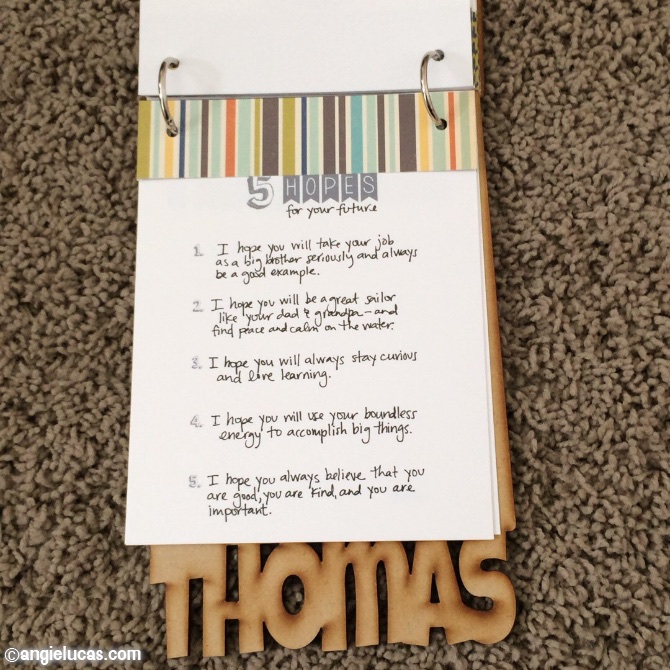 5 HOPES
for your future
1. I hope you will take your job
as a big brother seriously and always
be a good example.
2. I hope you will be a great sailor
like your dad & grandpa — and
find peace and calm on the water.
3. I hope you will always stay curious
and love learning.
4. I hope you will use your boundless
energy to accomplish big things.
5. I hope you always believe that you
are good, you are kind, and you are
important.
THOMAS
©angielucas.com